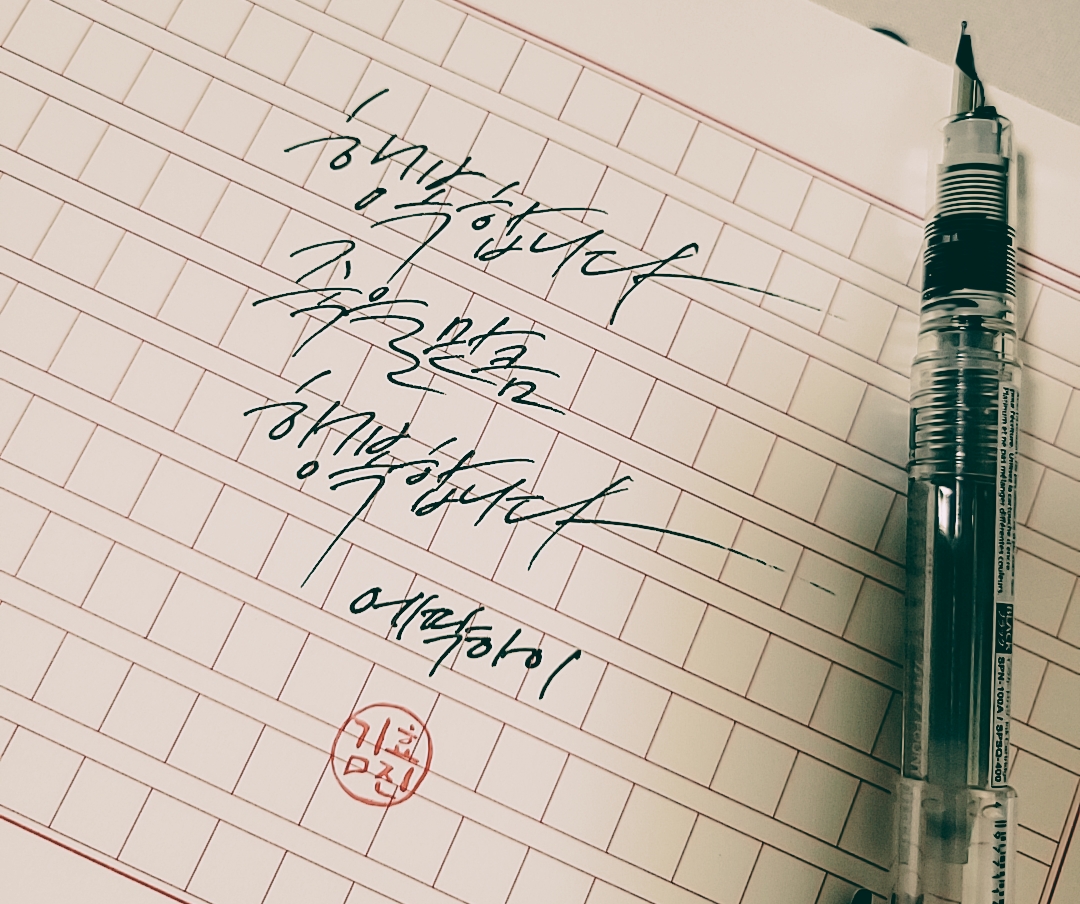 행복합니다
죽을만큼
행복합니다
에곽하이
김효진
BLACK
SPN-100A / SPSQ-400
Platinum et ne pas mélanger différentes couleurs